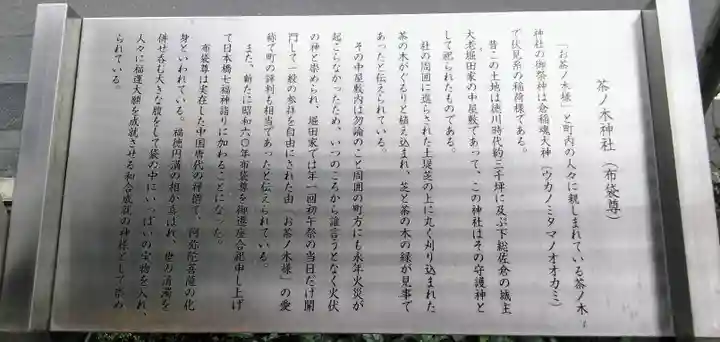 茶ノ木神社（布袋尊）
「お茶ノ木様」と町内の人々に親しまれている茶ノ木
神社の御祭神は倉稲魂大神（ウカノミタマノオオカミ）
で伏見系の稲荷様である。
昔この土地は徳川時代約三千坪に及ぶ下総佐倉の城主
大老堀田家の中屋敷であって、この神社はその守護神と
して祀られたものである。
社の周囲に巡らされた土堤芝の上に丸く刈り込まれた
茶の木がぐるりと植え込まれ、芝と茶の木の緑が見事で
あったと伝えられている。
その中屋敷内は勿論のこと周囲の町方にも永年火災が
起こらなかったため、いつのころから誰言うとなく火伏
の神と崇められ、堀田家では年一回初午祭の当日だけ開
門して一般の参拝を自由にされた由"お茶ノ木様"の愛
称で町の評判も相当であったと伝えられている。
また、新たに昭和六〇年布袋尊を御遷座合祀申し上げ
て日本橋七福神詣りに加わることになった。
布袋尊は実在した中国唐代の禅僧で、阿弥陀菩薩の化
身といわれている。福徳円満の相が喜ばれ、世の清濁を
併せ呑む大きな腹をして袋の中にいっぱいの宝物を入れ、
人々に福運大願を成就させる和合成就の神様として崇め
られている。